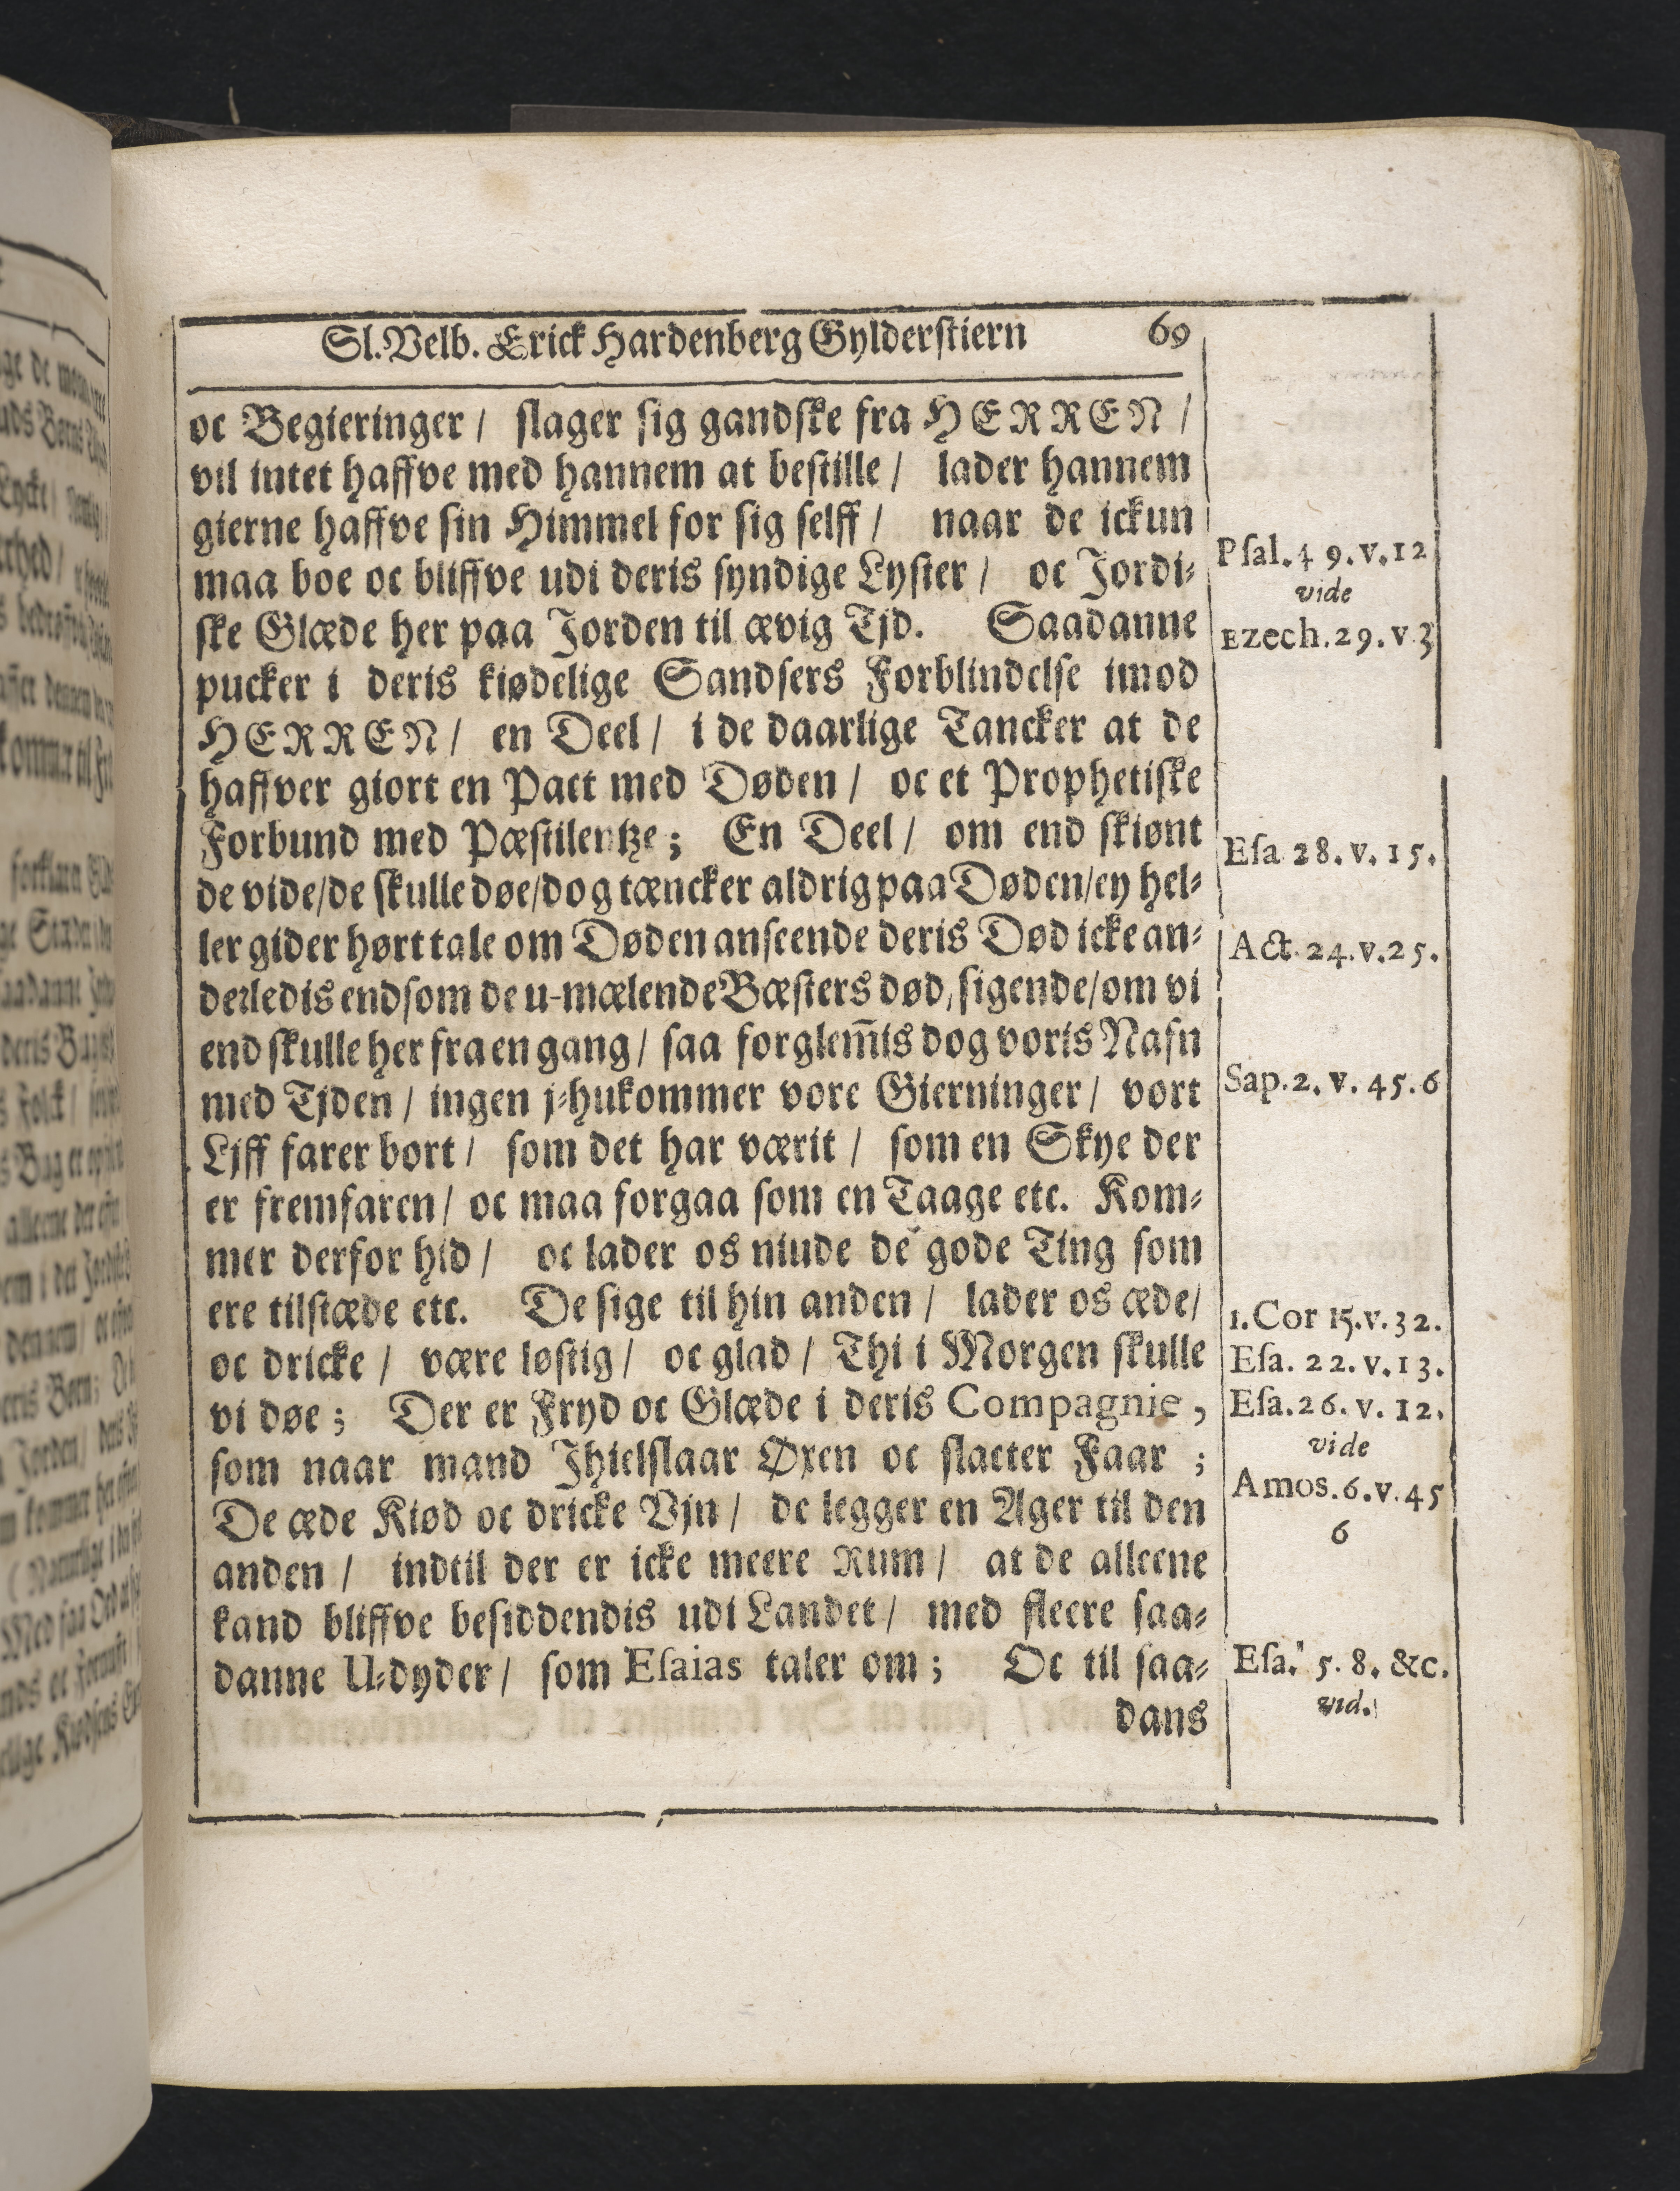 Sl. Velb. Erick Hardenberg Gylderstiern 69
oc Begieringer / slager sig gandske fra HERREN /
vil intet haffve med hannem at bestille / lader hannem
gierne haffve sin Himmel for sig selff / naar de ickun
maa boe oc bliffve udi deris syndige Lyster / oc Jordi-
ske Glæde her paa Jorden til ævig Tjd. Saadanne
pucker i deris kiødelige Sandsers Forblindelse imod
HERREN / en Deel / i de daarlige Tancker at de
haffver giort en Pact med Døden / oc et Prophetiske
Forbund med Pæstilentze; En Deel / om end skiønt
de vide/de skulle døe/dog tæncker aldrig paa Døden/ey hel-
ler gider hørt tale om Døden anseende deris Død icke an-
derledis end som de u-mælende Bæsters død, sigende/om vi
end skulle her fra en gang / saa forglem̄is dog voris Nafn
med Tjden / ingen j-hukommer vore Gierninger / vort
Ljff farer bort / som det har værit / som en Skye der
er fremfaren / oc maa forgaa som en Taage etc. Kom-
mer derfor hid / oc lader os niude de gode Ting som
ere tilstæde etc. De sige til hin anden / lader os æde/
oc dricke / være løstig / oc glad / Thi i Morgen skulle
vi døe; Der er Fryd oc Glæde i deris Compagnie,
som naar mand Jhielslaar Øxen oc slacter Faar ;
De æde Kiød oc dricke Vjn / de legger en Ager til den
anden / indtil der er icke meere Rum / at de alleene
kand bliffve besiddendis udi Landet / med fleere saa-
danne U-dyder / som Esaias taler om ; Oc til saa-
dans
Psal. 49. v. 12
vide
Ezech. 29. v. 3
Esa 28. v. 15.
Act. 24. v. 25.
Sap. 2. v. 45. 6
1. Cor 15. v. 32.
Esa. 22. v. 13.
Esa. 26. v. 12.
vide
Amos. 6. v. 45
6
Esa. 5. 8. &c.
vid.